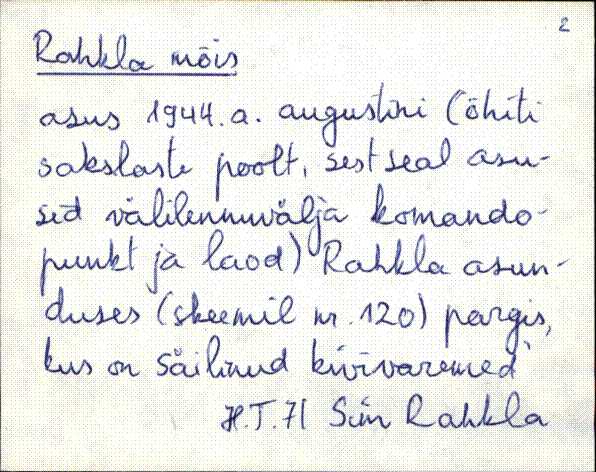 2
Rahkla mõis
asus 1944.a. augustini (õhiti
sakslaste poolt, sest seal asu-
sid välilennuvälja komando-
punkt ja laod) Rahkla asun-
duses (skeemil nr. 120) pargis,
kus on säilinud kivivaremed
H.T. 71 Sim Rahkla